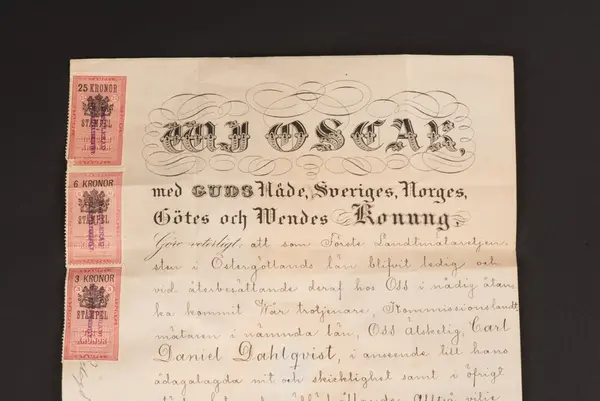 25 KRONOR
STÄMPEL
6 KRONOR
STÄMPEL
3 KRONOR
STÄMPEL
KRONOR
WIJ OSCAR,
med GUDS Nåde, Sveriges, Norges,
Götes och Wendes Konung,
Göre veterligt, att som Förste Landtmätaretjen-
sten i Östergötlands län blifvit ledig och
vid återbesättande deraf hos Oss i nådig åtan-
ka kommit Wår trotjenare, Kommissionslandt-
mätaren i nämnda län, Oss älskelig, Carl
Daniel Dahlqvist, i anseende till hans
ådagalagda nit och skicklighet samt i öfrigt